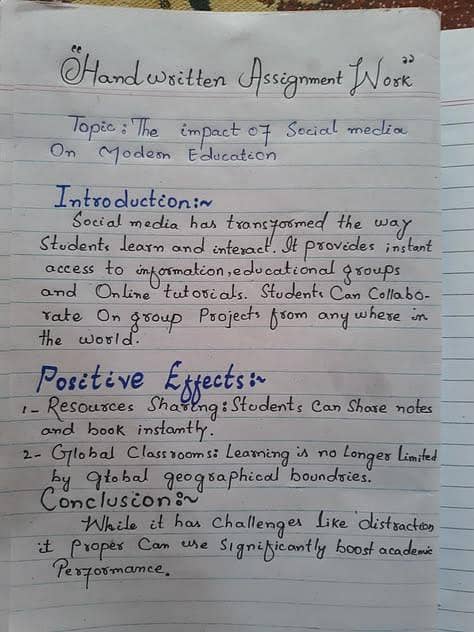 "Handwritten Assignment Work"
Topic: The impact of Social media
On Modern Education
Introduction:~
Social media has transformed the way
Students learn and interact. It provides instant
access to information, educational groups
and Online tutorials. Students Can Collabo-
rate On group Projects from any where in
the world.
Positive Effects:~
1- Resources Sharing: Students Can Share notes
and book instantly.
2- Global Classrooms: Learning is no Longer Limited
by global geographical boundries.
Conclusion:~
While it has Challenges Like distraction
it Proper Can use Significantly boost academic
Performance.